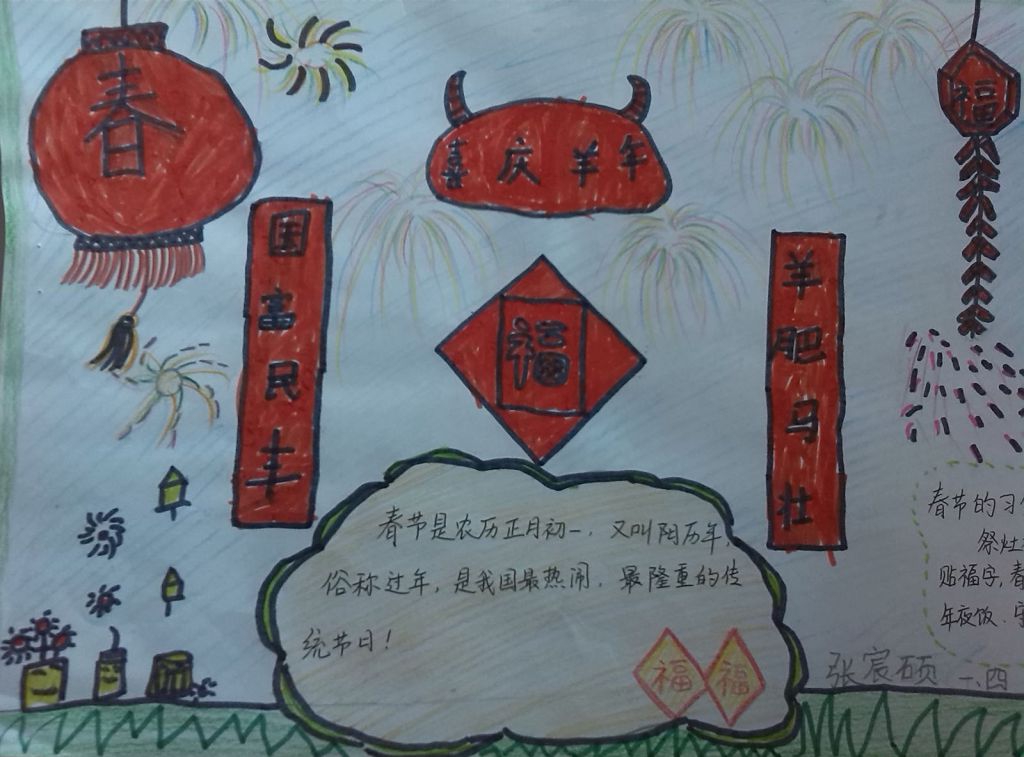 春
喜庆羊年
福
国富民丰
福
羊肥马壮
春节是农历正月初一，又叫阴历年，
俗称过年，是我国最热闹，最隆重的传
统节日！
福 福
春节的习
祭灶
贴福字，春
年夜饭、守
张宸硕 一、四